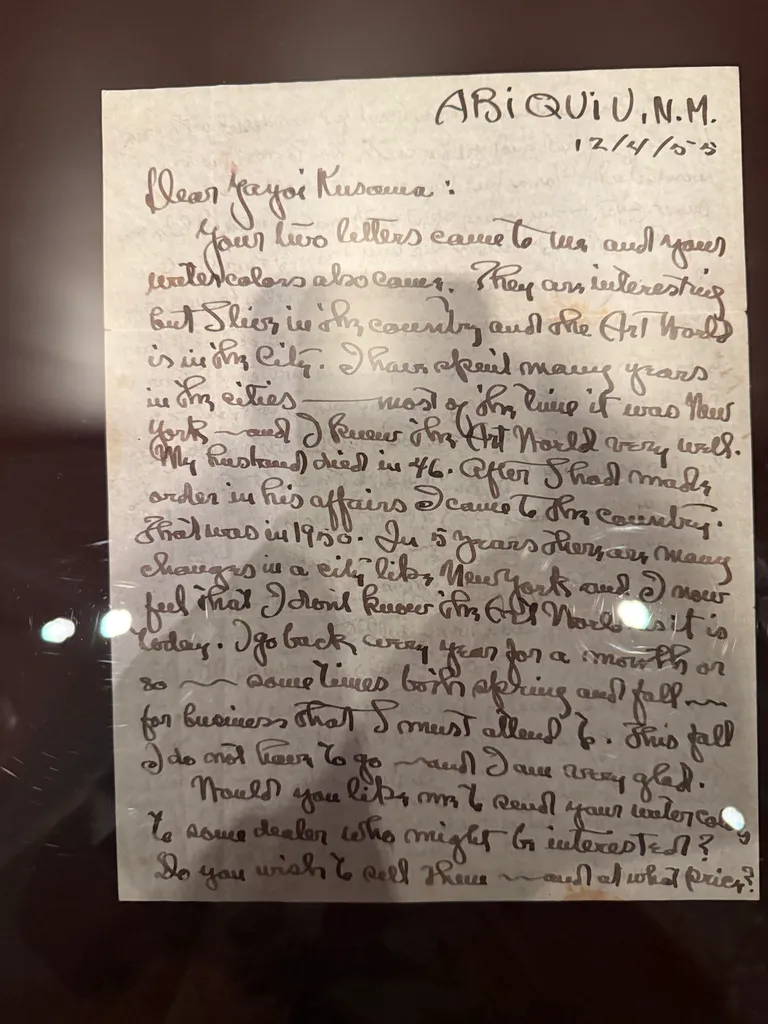 ABiQUiU, N.M.
12/4/55
Dear Yayoi Kusama :
Your two letters came to me and your
watercolors also came. They are interesting
but I live in the country and the Art World
is in the City. I have spent many years
in the cities — most of the time it was New
York — and I knew the Art World very well.
My husband died in 46. After I had made
order in his affairs I came to the country.
That was in 1950. In 5 years there are many
changes in a city like New York and I now
feel that I don't know the Art World as it is
today. I go back every year for a month or
so — sometimes both spring and fall —
for business that I must attend to. This fall
I do not have to go — and I am very glad.
Would you like me to send your watercolors
to some dealer who might be interested?
Do you wish to sell them — and at what price?